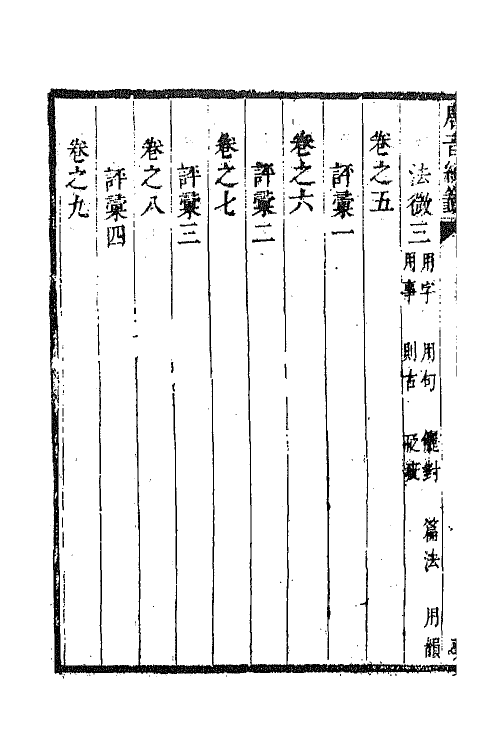 法微三
用字　用句　儷對　篇法　用韻
用事　則古　砭疵
卷之五
評彙一
卷之六
評彙二
卷之七
評彙三
卷之八
評彙四
卷之九